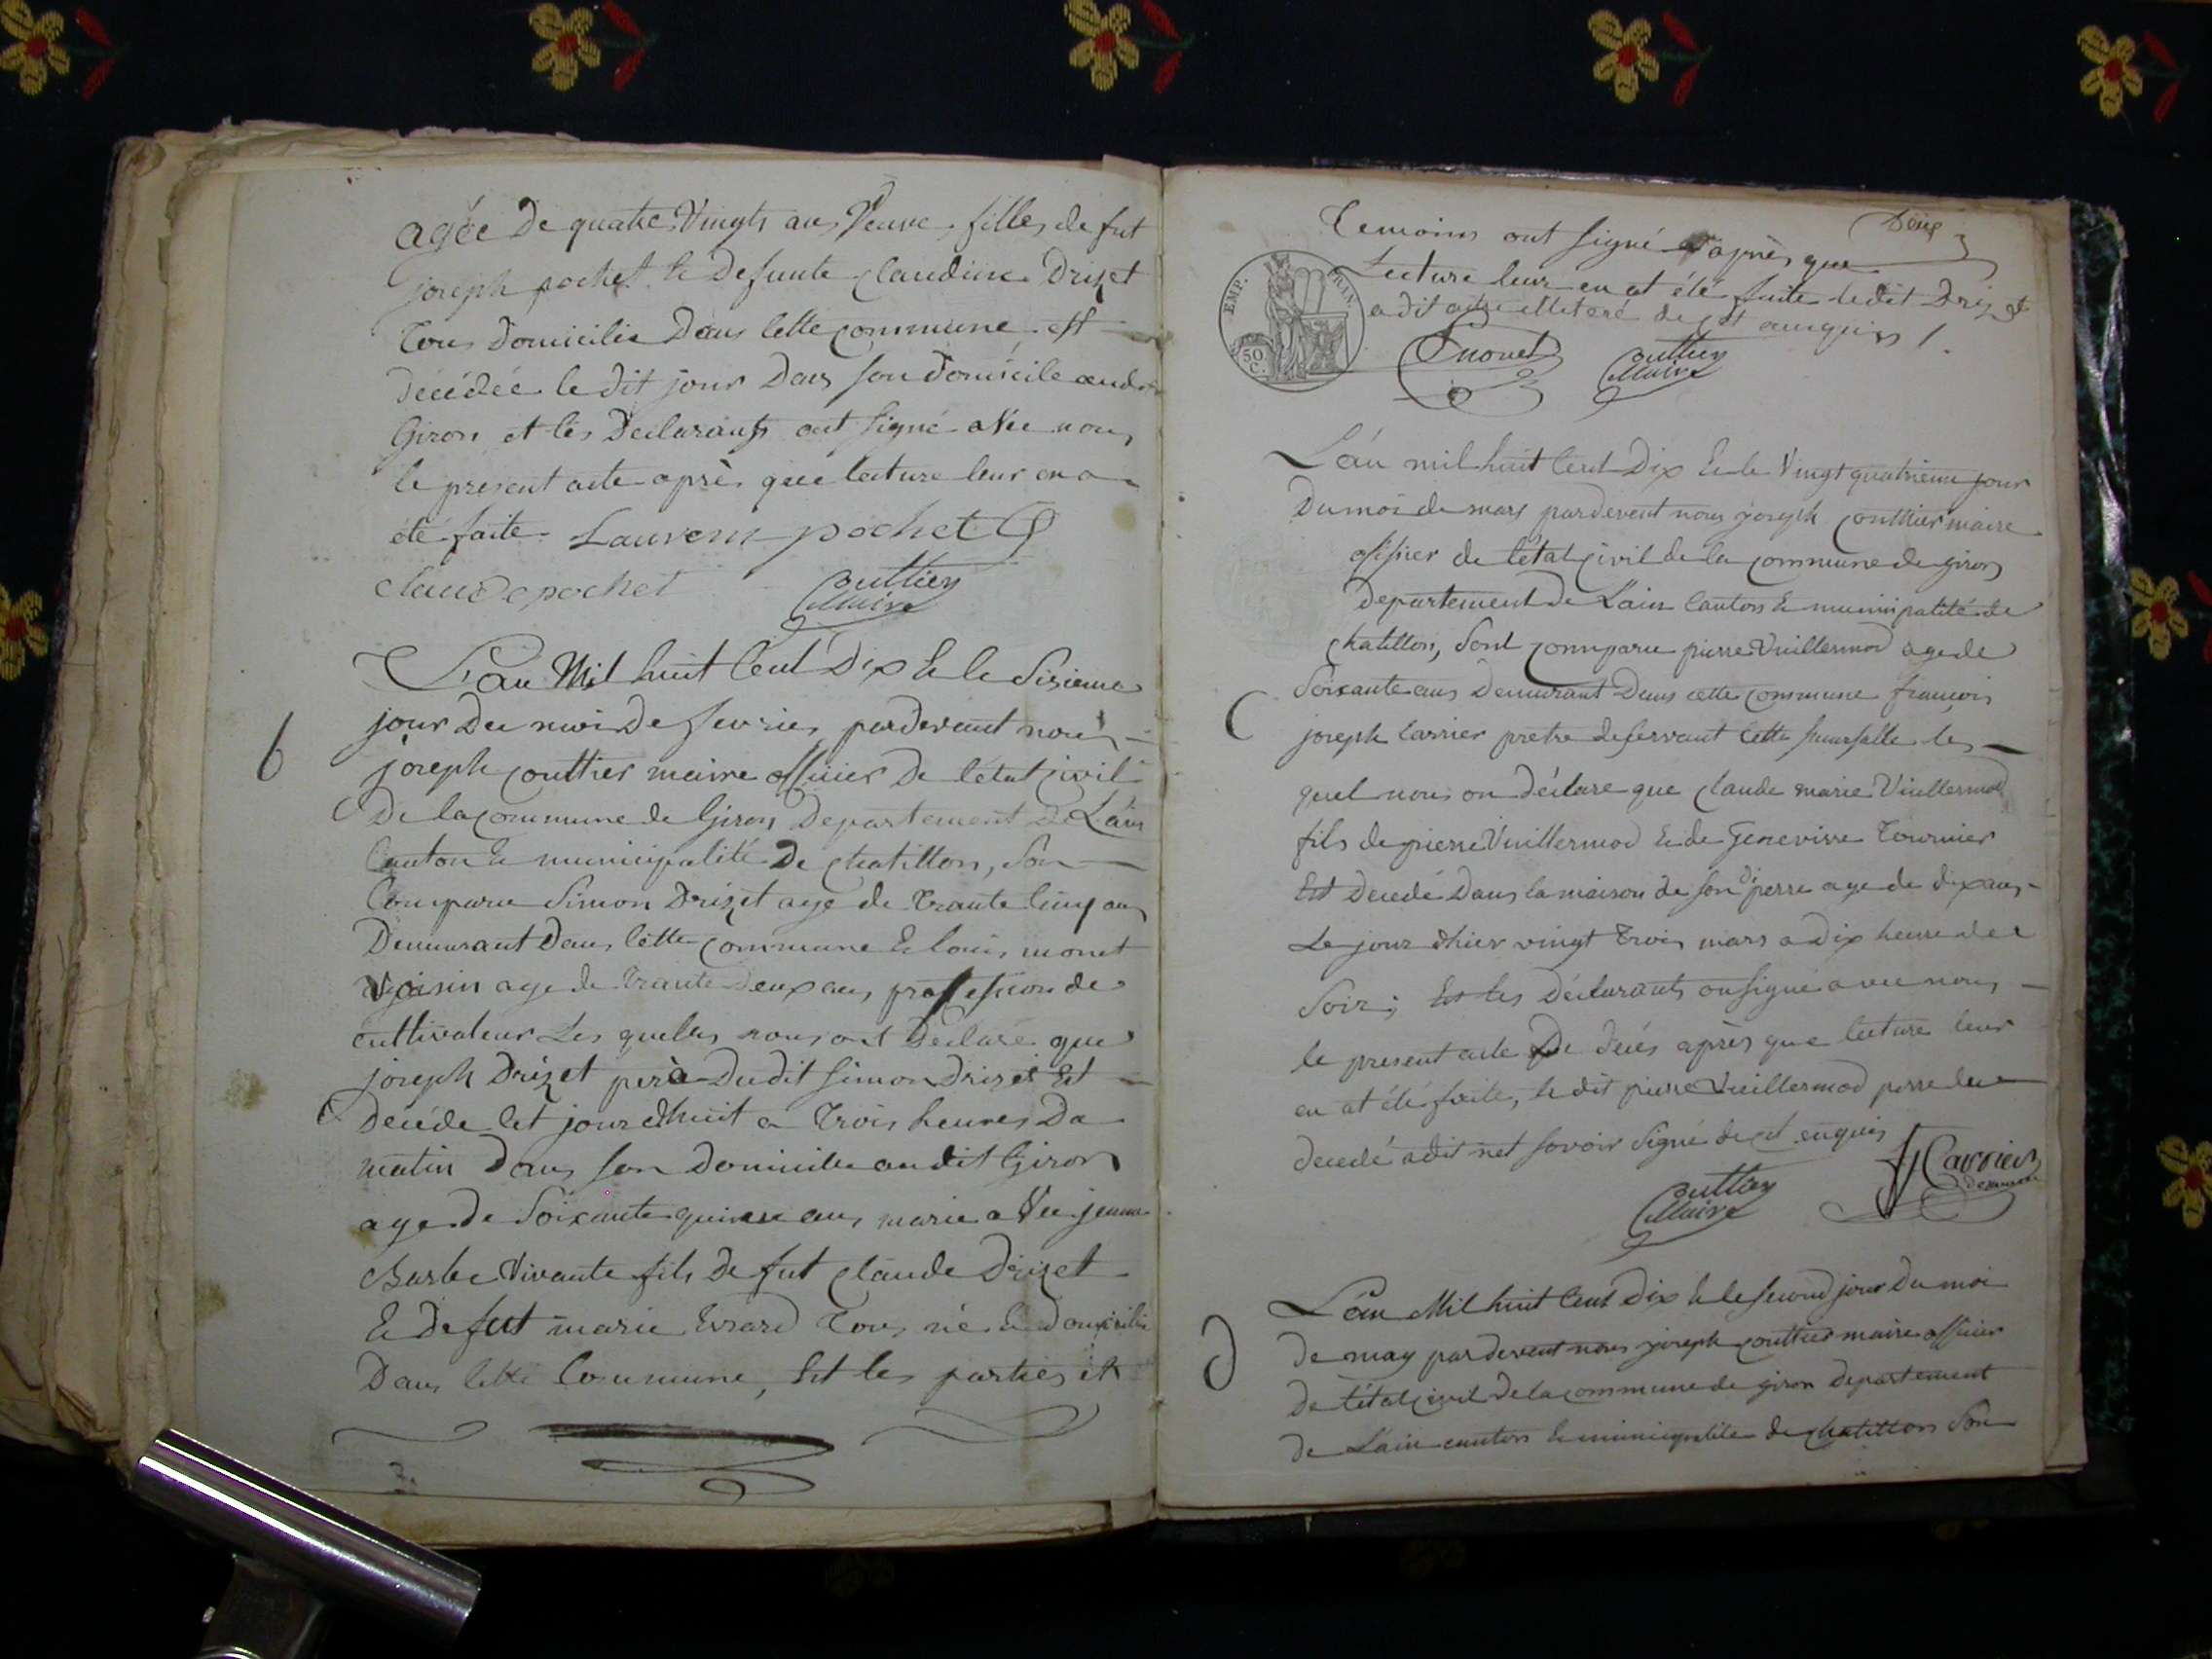 agée De quatre Vingts ans Veuve, filles de fut
joseph pochet & Defunte Claudine Drizet
Tous Domicilie Dans cette commune est
Décédée le dit jour Dans son Domicile audit
Giron et les Declarants ont signé avec nous
le present acte après que lecture leur en a
été faite. Laurent pochet
claude pochet Couttier
Maire
L'an Mil huit Cent Dix & le Sixieme
jour Du moi De fevrier pardevant nous
b
joseph Couttier maire officier De l'état Civil
De la Commune de Giron Departement De L'ain
Canton & municipalité De Chatillon, Son
Comparu Simon Drizet agé de trante cinq ans
Demeurant Dans cette Commune & louis monet
Voisin age de trante Deux ans, profession de
cultivateur Les quelles nous ont Declaré que
joseph Drizet perè Dudit Simon Drizet Est
Decéde cet jourdhuit a trois heures Da
matin Dans son Domicile audit Giron
age De Soixante quinze ans, marie a Vec jeanne
Barbe Vivante fils De fut Claude Drizet
& De fut marie Evrard Tous né & Domicilie
Dans cette Commune, Est les parties et
Deux
Temoins ont signé après que
Lecture leur en at été faite ledit Drizet
EMP. FRAN.
50
C.
a dit aitre illeteré de cet anquis /.
Monet Couttier
Maire
L'án mil huit Cent Dix & le Vingt quatrieme jour
Du moi de mars pardevent nous joseph Couttier maire
offisier de l'état Civil de la Commune de giron
Departement De L'ain Canton & municipalité de
Chatillon, Sont Comparu pierre Vuillermod age de
Soixante ans Demurant Dans cette Commune françois
C
joseph Carrier pretre deservant Cette sucursalle les
quel nous on Déclare que Claude marie Vuillermod
fils de pierre Vuillermod & de Genevivre Tournier
Est Decedé Dans la maison de son Di perre age de dix ans
Le jour d'hier vingt trois mars a Dix heure de
Soir; Est les Déclarants on signé avec nous
le present acte De décés après que lecture leur
en at été faite, le dit pierre Vuillermod perre du
decedé a dit net savoir signé de cet enquis
Couttier
Maire
fj Carrier
desservant
L'án Mil huit Cent Dix & le second jour Du moi
D
de may pardevent nous joseph Couttier maire officier
De l'état Civil De la Commune de giron Departement
de L'ain canton & municipalité de Chatillon Son